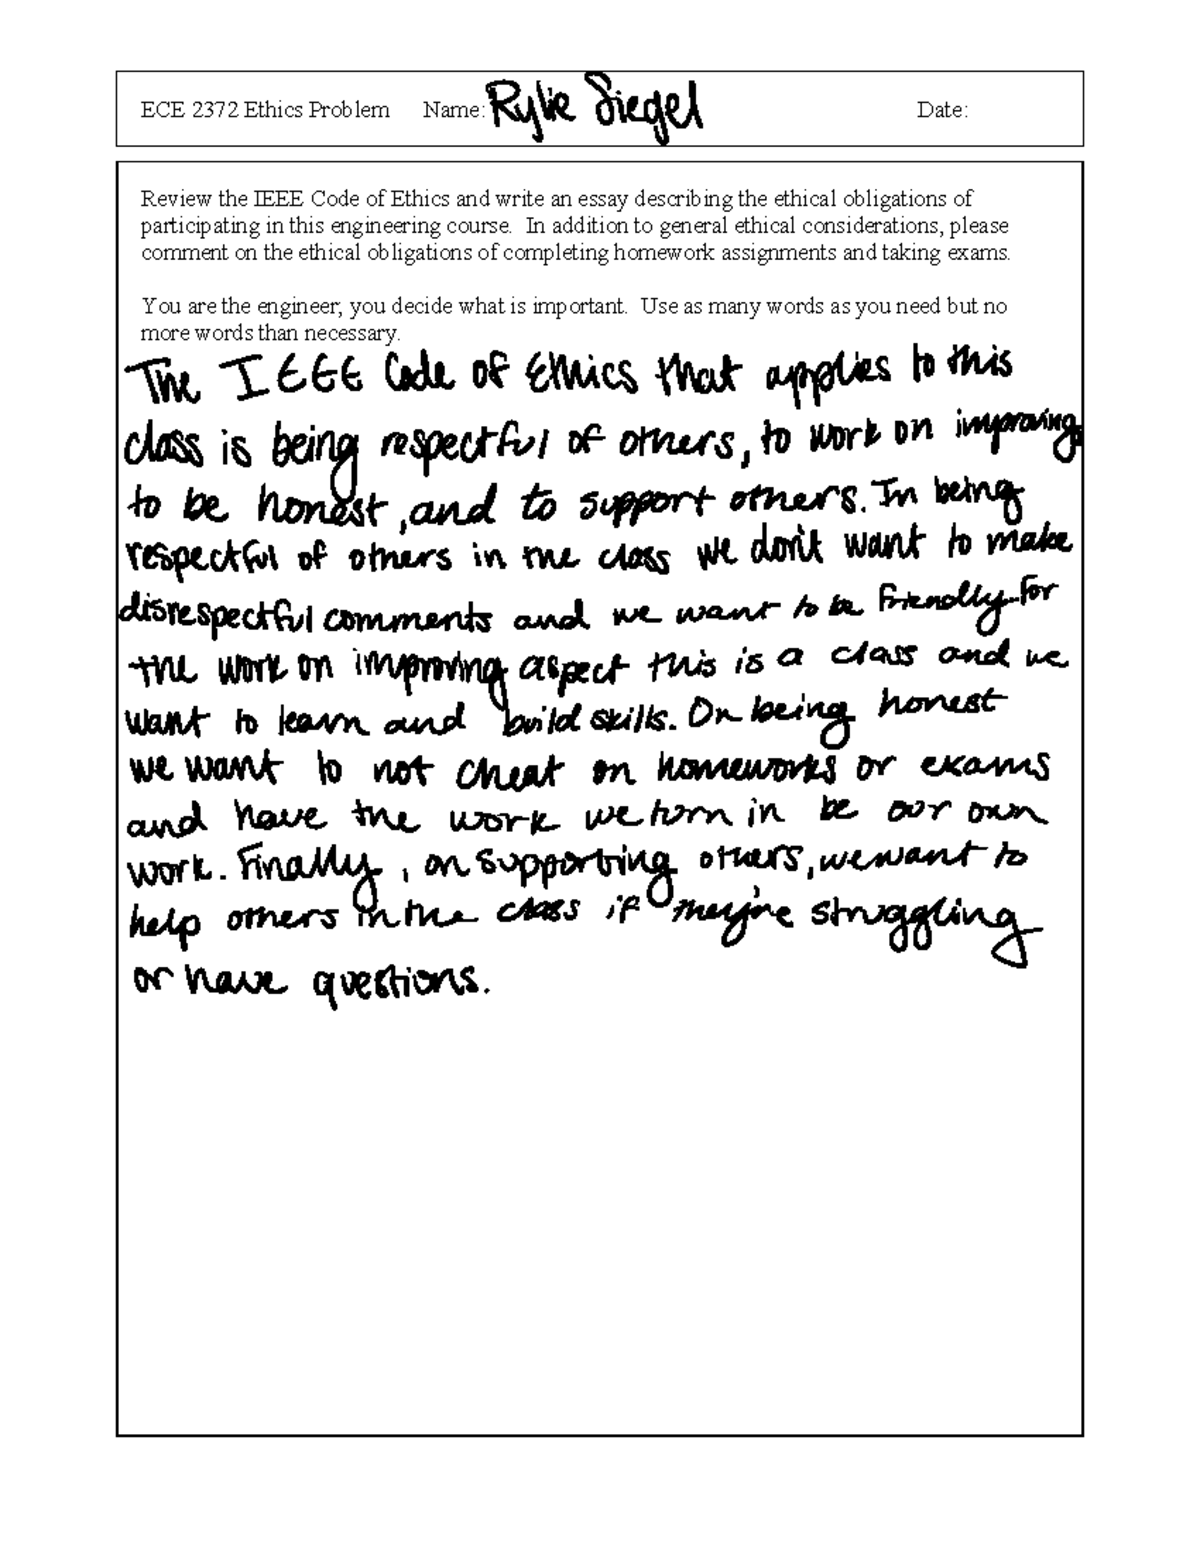 ECE 2372 Ethics Problem Name: Rylie Siegel Date:
Review the IEEE Code of Ethics and write an essay describing the ethical obligations of
participating in this engineering course. In addition to general ethical considerations, please
comment on the ethical obligations of completing homework assignments and taking exams.
You are the engineer, you decide what is important. Use as many words as you need but no
more words than necessary.
The IEEE Code of Ethics that applies to this
class is being respectful of others, to work on improving,
to be honest, and to support others. In being
respectful of others in the class we don't want to make
disrespectful comments and we want to be friendly. For
the work on improving aspect this is a class and we
want to learn and build skills. On being honest
we want to not cheat on homeworks or exams
and have the work we turn in be our own
work. Finally, on supporting others, we want to
help others in the class if they're struggling
or have questions.